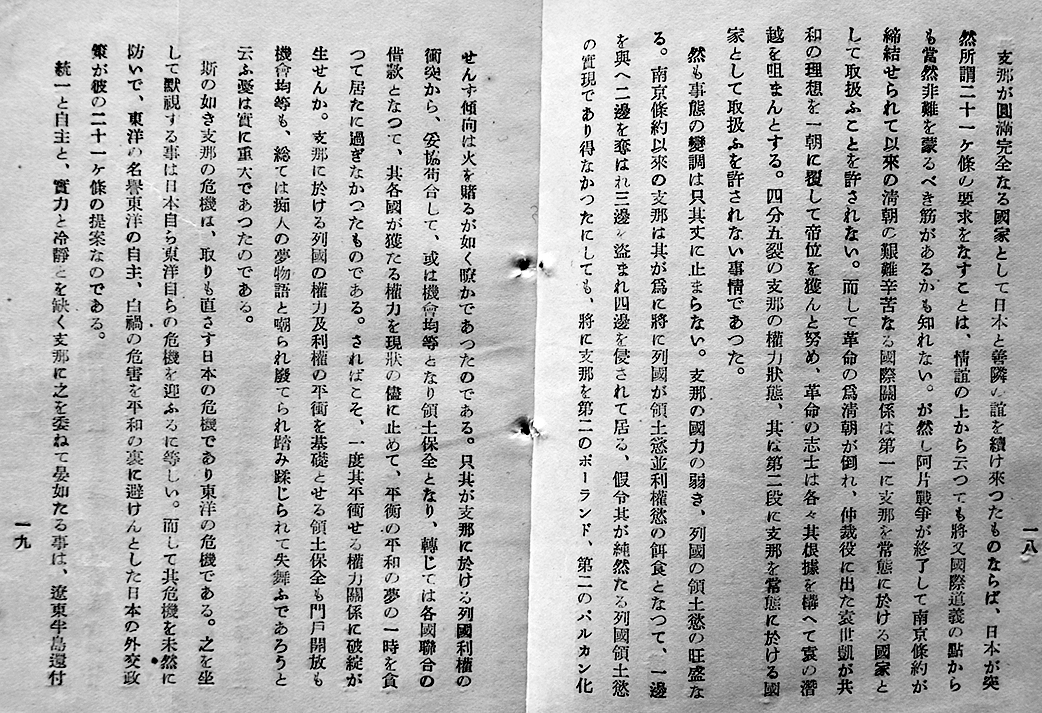 支那が圓滿完全なる國家として日本と善隣の誼を續け來つたものならば、日本が突
然所謂二十一ヶ條の要求をなすことは、情誼の上から云つても將又國際道義の點から
も當然非難を蒙るべき筋があるかも知れない。が然し阿片戰爭が終了して南京條約が
締結せられて以來の淸朝の艱難辛苦なる國際關係は第一に支那を常態に於ける國家と
して取扱ふことを許されない。而して革命の爲淸朝が倒れ、仲裁役に出た袁世凱が共
和の理想を一朝に覆して帝位を獲んと努め、革命の志士は各々其根據を構へて袁の潛
越を咀まんとする。四分五裂の支那の權力狀態、其は第二段に支那を常態に於ける國
家として取扱ふを許されない事情であつた。
然も事態の變調は只其丈に止まらない。支那の國力の弱き、列國の領土慾の旺盛な
る。南京條約以來の支那は其が爲に將に列國が領土慾並利權慾の餌食となつて、一邊
を與へ二邊を奪はれ三邊を盜まれ四邊を侵されて居る、假令其が純然たる列國領土慾
の實現であり得なかつたにしても、將に支那を第二のポーランド、第二のバルカン化
一八
せんす傾向は火を賭るが如く瞭かであつたのである。只其が支那に於ける列國利權の
衝突から、妥協苟合して、或は機會均等となり領土保全となり、轉じては各國聯合の
借款となつて、其各國が獲たる權力を現狀の儘に止めて、平衡の平和の夢の一時を貪
つて居たに過ぎなかつたものである。さればこそ、一度其平衡せる權力關係に破綻が
生せんか。支那に於ける列國の權力及利權の平衡を基礎とせる領土保全も門戶開放も
機會均等も、總ては痴人の夢物語と嘲られ廢てられ踏み蹂じられて失舞ふであろうと
云ふ憂は實に重大であつたのである。
斯の如き支那の危機は、取りも直さず日本の危機であり東洋の危機である。之を坐
して默視する事は日本自ら東洋自らの危機を迎ふるに等しい。而して其危機を未然に
防いで、東洋の名譽東洋の自主、白禍の危害を平和の裏に避けんとした日本の外交政
策が彼の二十一ヶ條の提案なのである。
統一と自主と、實力と冷靜とを缺く支那に之を委ねて晏如たる事は、遼東半島還付
一九